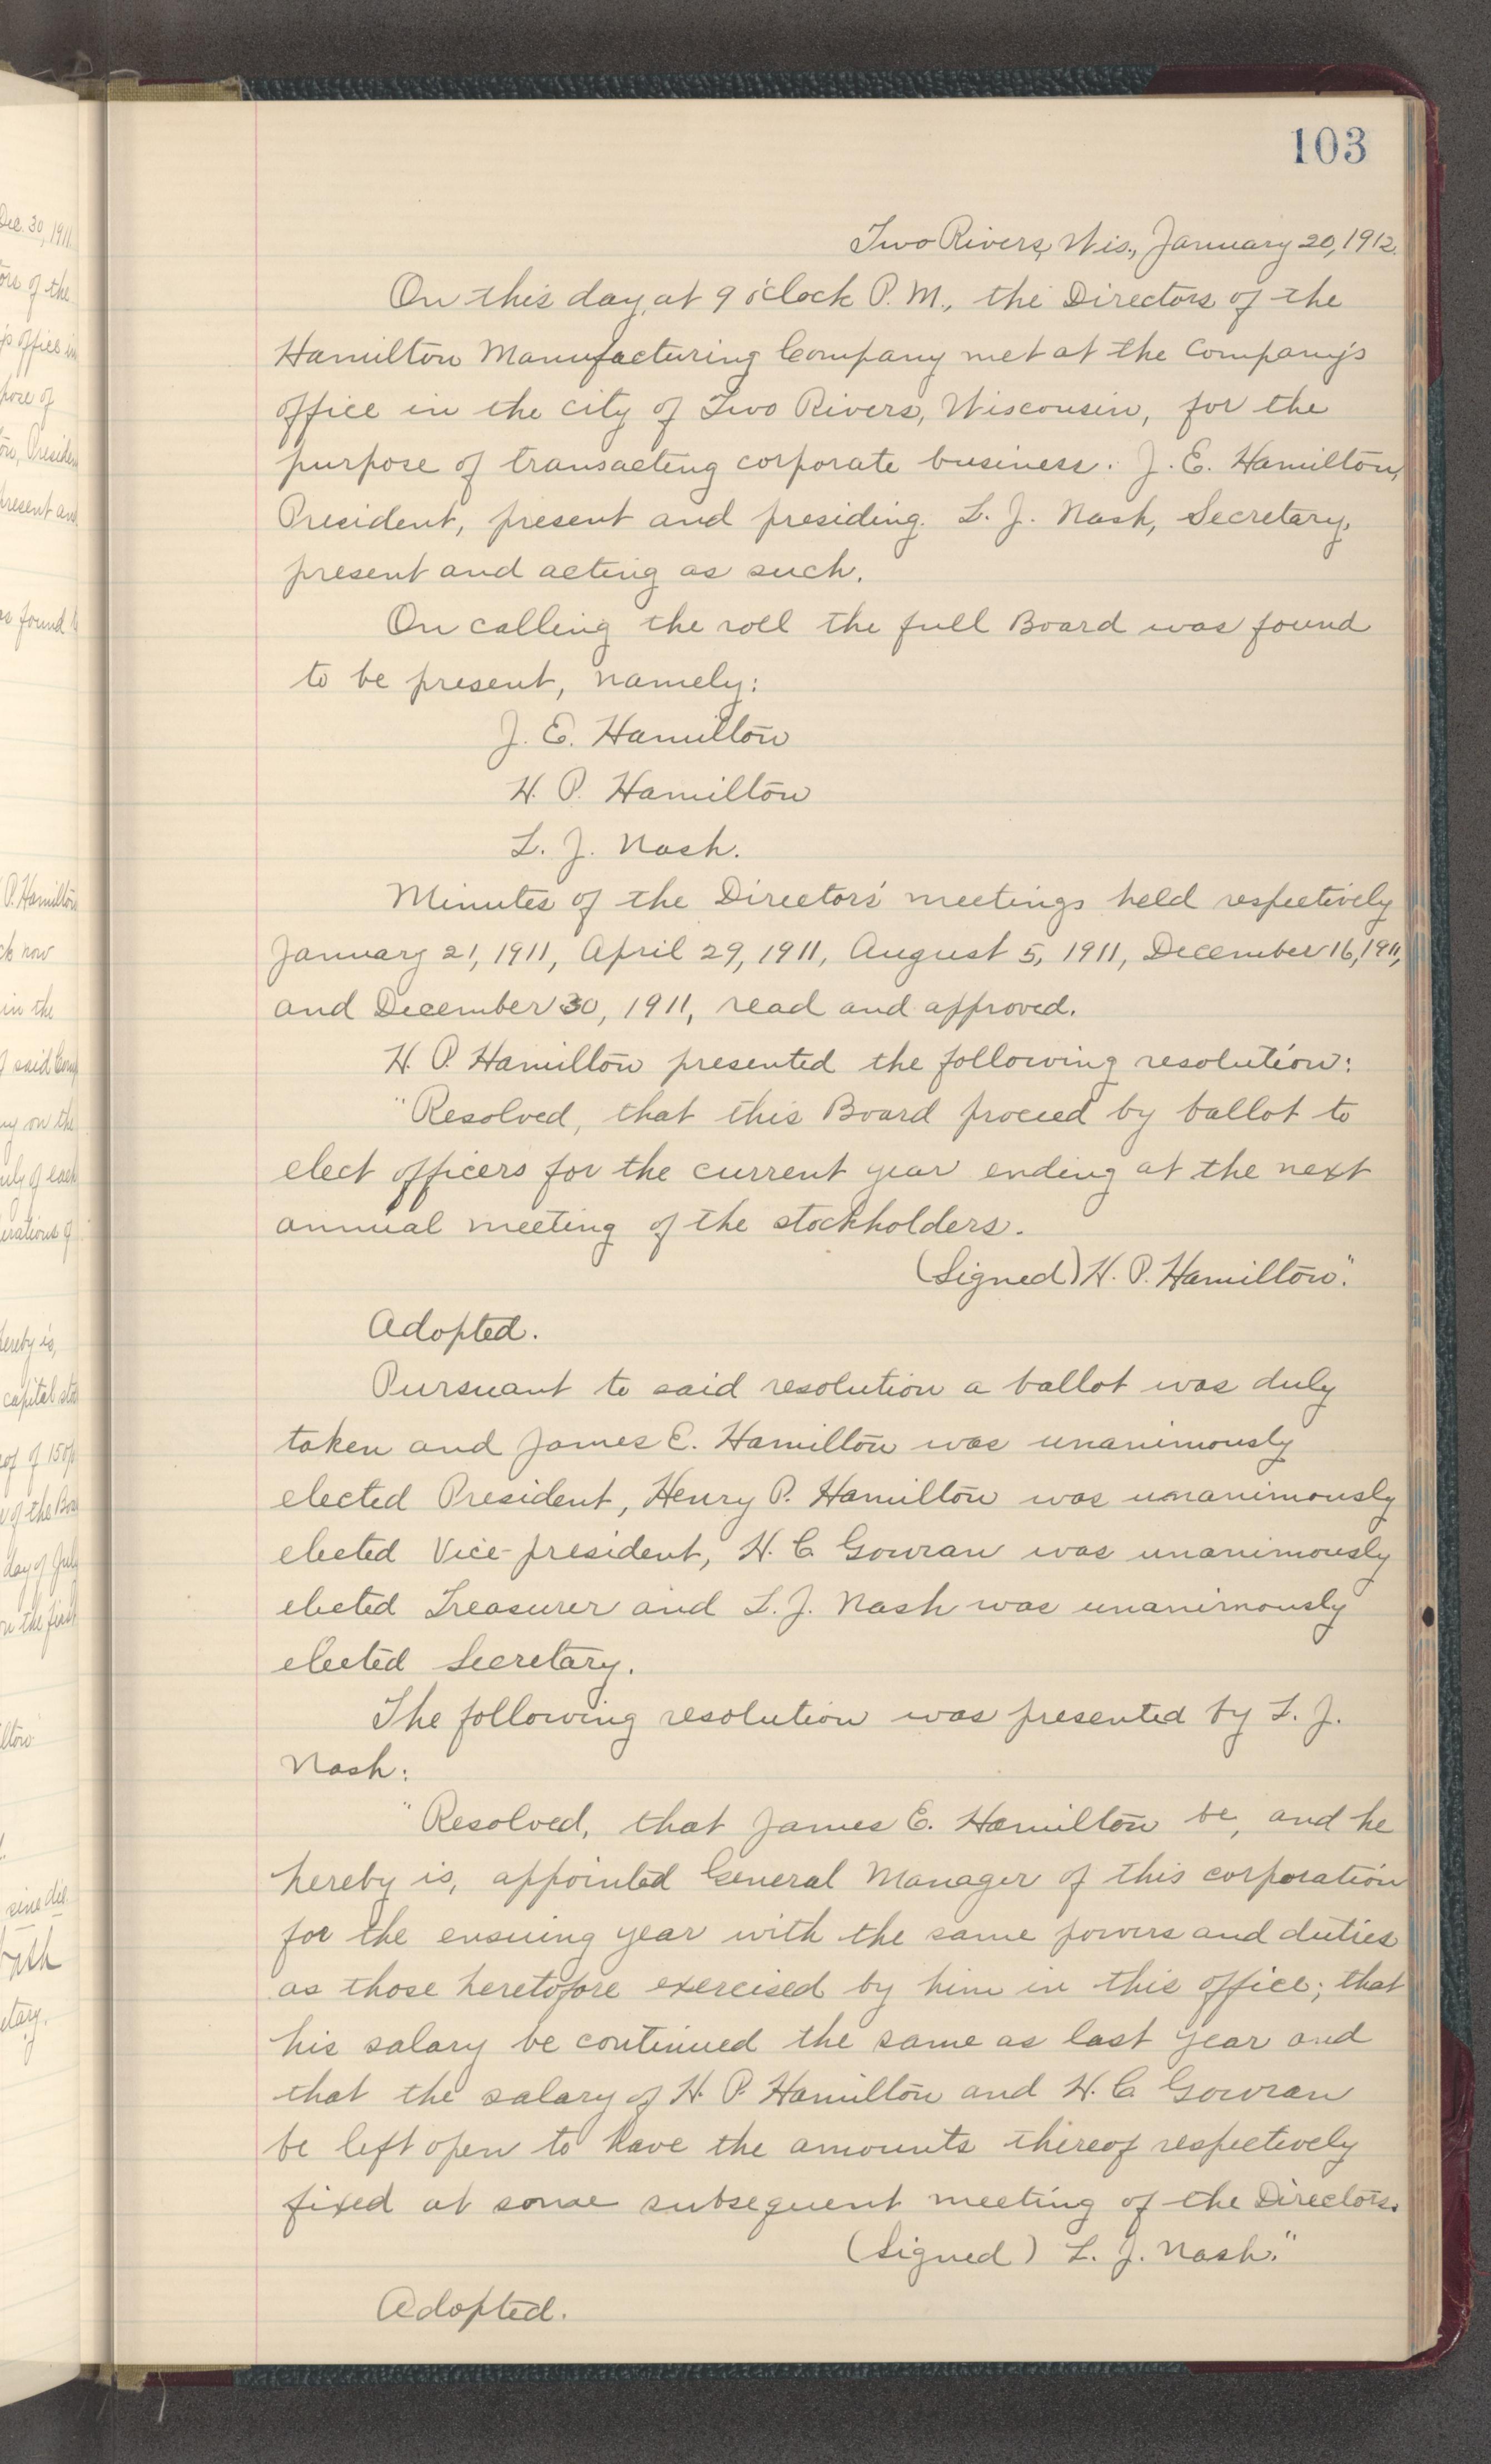 103
Two Rivers, Wis., January 20, 1912.
On this day, at 9 o'clock P. M., the Directors of the
Hamilton Manufacturing Company met at the Company's
office in the city of Two Rivers, Wisconsin, for the
purpose of transacting corporate business. J. E. Hamilton,
President, present and presiding. L. J. Nash, Secretary,
present and acting as such.
On calling the roll the full Board was found
to be present, namely:
J. E. Hamilton
H. P. Hamilton
L. J. Nash.
Minutes of the Directors' meetings held respectively
January 21, 1911, April 29, 1911, August 5, 1911, December 16, 1911,
and December 30, 1911, read and approved.
H. P. Hamilton presented the following resolution:
"Resolved, that this Board proceed by ballot to
elect officers for the current year ending at the next
annual meeting of the stockholders.
(Signed) H. P. Hamilton."
Adopted.
Pursuant to said resolution a ballot was duly
taken and James E. Hamilton was unanimously
elected President, Henry P. Hamilton was unanimously
elected Vice-president, H. C. Gowran was unanimously
elected Treasurer and L. J. Nash was unanimously
elected Secretary.
The following resolution was presented by L. J.
Nash:
"Resolved, that James E. Hamilton be, and he
hereby is, appointed General Manager of this corporation
for the ensuing year with the same powers and duties
as those heretofore exercised by him in this office; that
his salary be continued the same as last year and
that the salary of H. P. Hamilton and H. C. Gowran
be left open to have the amounts thereof respectively
fixed at some subsequent meeting of the Directors.
(Signed) L. J. Nash."
Adopted.